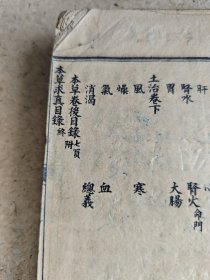 肝
腎水 腎火命門
胃 大腸
土治卷下
風 寒
燥
氣 血
消渴 總義
本草卷後目錄七頁附
本草求真目錄終